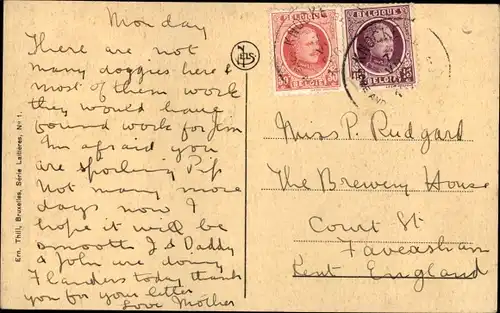 Monday
There are not
many doggies here &
most of them work
they would have
found work for Jim
Im afraid you
are spoiling Pip
Not many more
days now I
hope it will be
smooth J & Daddy
& John are doing
Flanders today thank
you for your letter
Love Mother
Ern. Thill, Bruxelles, Série Laitières, No 1.
NELS
BELGIQUE
BELGIË
BELGIQUE
BELGIË
15
Miss P. Rudgard
The Brewery House
Court St
Faversham
Kent England